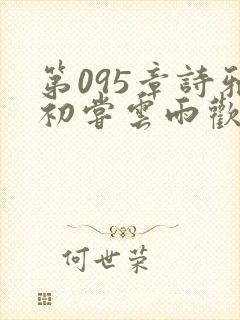 第095章詩雅
初嘗雲雨歡
何世荣